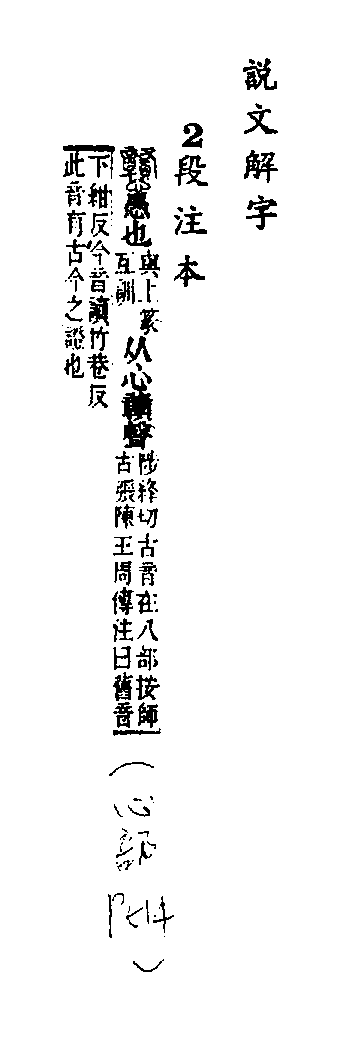 説文解字
2段注本
戇愚也與上篆互訓从心贛聲陟絳切古音在八部按師古張陳王周傳注曰舊音
下紺反今音讀竹巷反此音有古今之證也
(心部 P514)